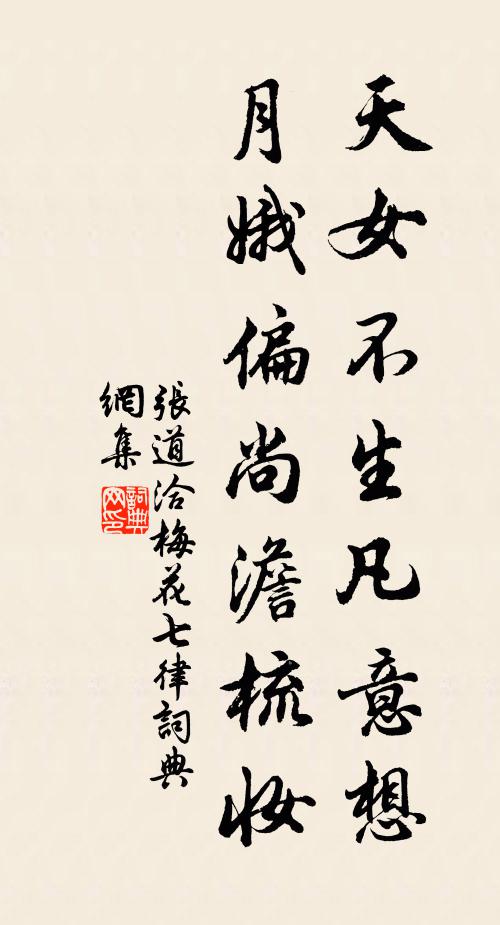 天女不生凡意想
月娥偏尚澹梳妝
張道洽梅花七律詞典
網集
詞典
网印